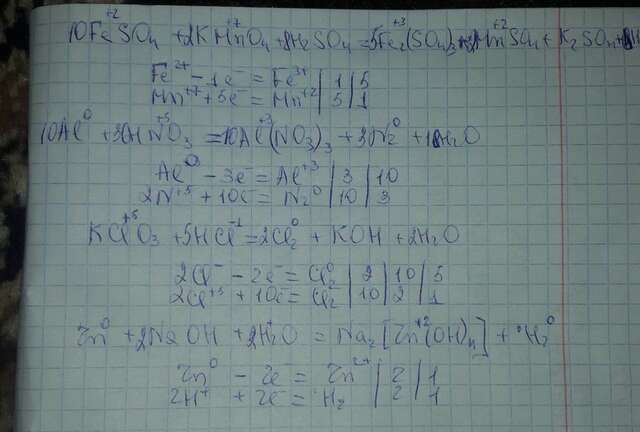 +2 +7 +3 +2
10FeSO4 + 2KMnO4 + 8H2SO4 = 5Fe2(SO4)3 + 2MnSO4 + K2SO4 +
Fe2+ - 1e- = Fe3+ | 1 | 5
Mn+7 + 5e- = Mn+2 | 5 | 1
0 +5 +3 0
10Al + 36HNO3 = 10Al(NO3)3 + 3N2 + 18H2O
Al0 - 3e- = Al+3 | 3 | 10
2N+5 + 10e- = N2 0 | 10 | 3
+5 -1 0
KClO3 + 5HCl = 2Cl2 + KOH + 2H2O
2Cl- - 2e- = Cl2 0 | 2 | 10 | 5
2Cl+5 + 10e- = Cl2 0 | 10 | 2 | 1
0 + +2 0
Zn + 2NaOH + 2H2O = Na2[Zn(OH)4] + H2
Zn0 - 2e- = Zn2+ | 2 | 1
2H+ + 2e- = H2 | 2 | 1